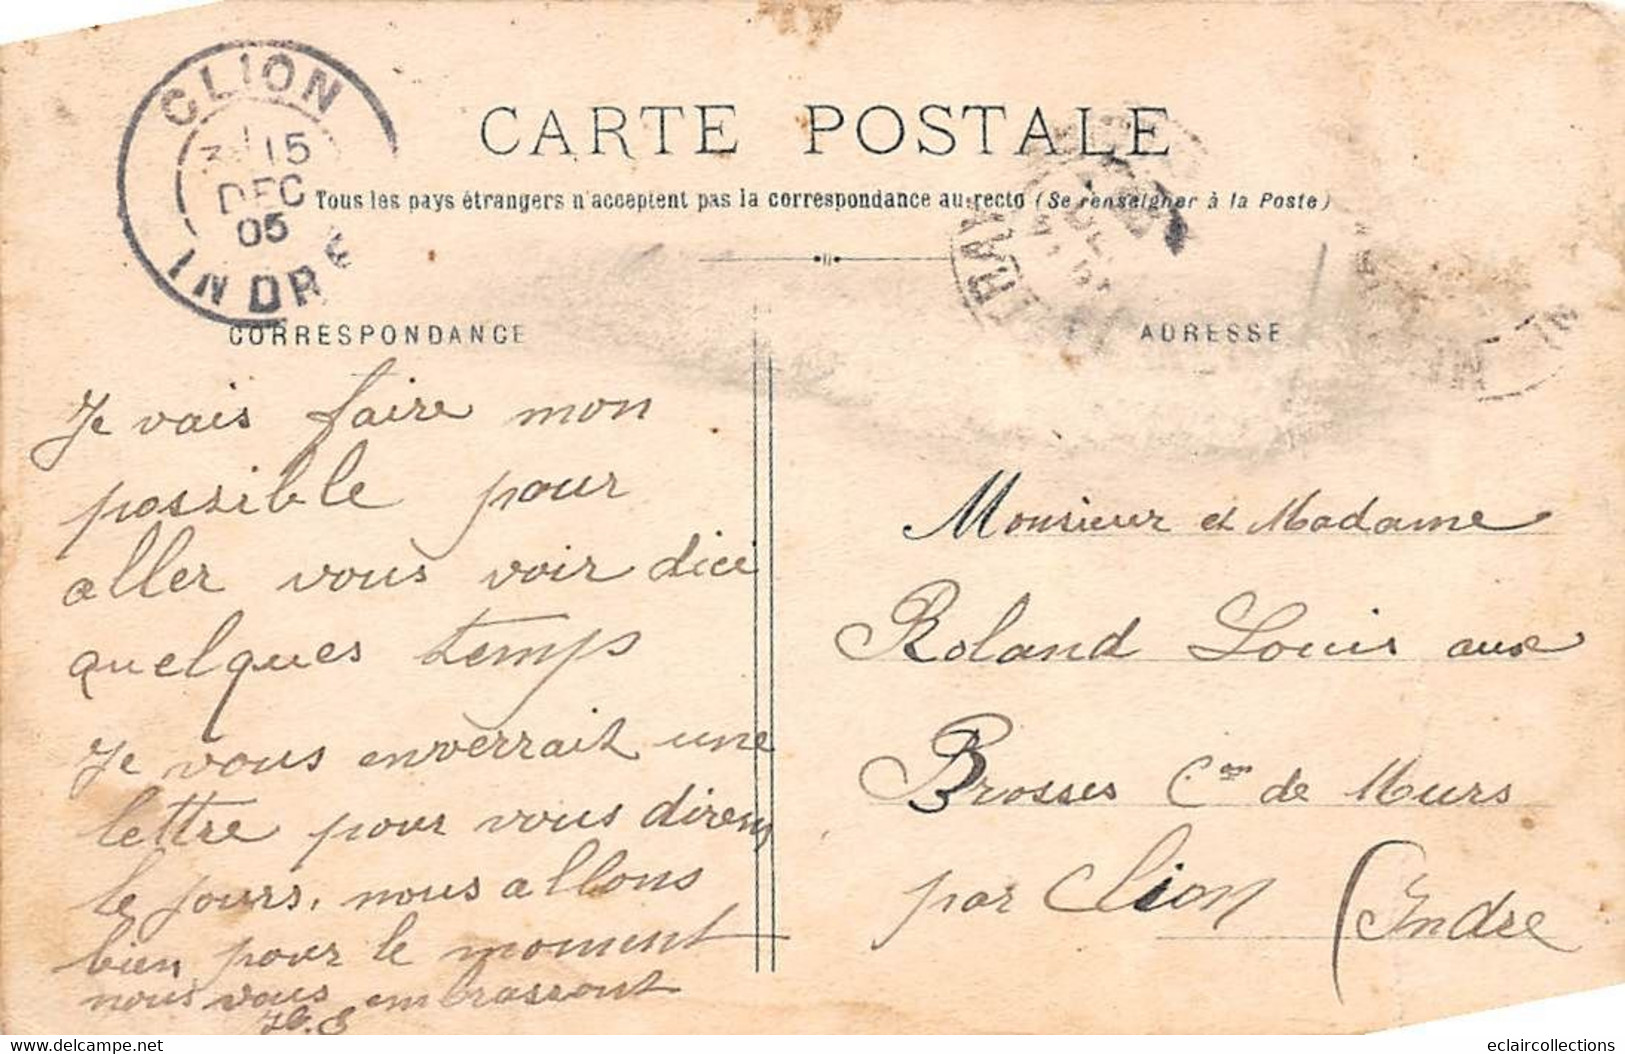 CARTE POSTALE
Tous les pays étrangers n'acceptent pas la correspondance au recto (Se renseigner à la Poste)
CLION
15
DEC
05
INDRE
CORRESPONDANCE
Je vais faire mon
possible pour
aller vous voir dici
quelques temps
Je vous enverrait une
lettre pour vous direns
le jours, nous allons
bien pour le moment
nous vous embrassont
ADRESSE
Monsieur et Madame
Roland Louis aux
Brosses Con de Murs
par Clion (Indre
www.delcampe.net
eclaircollections